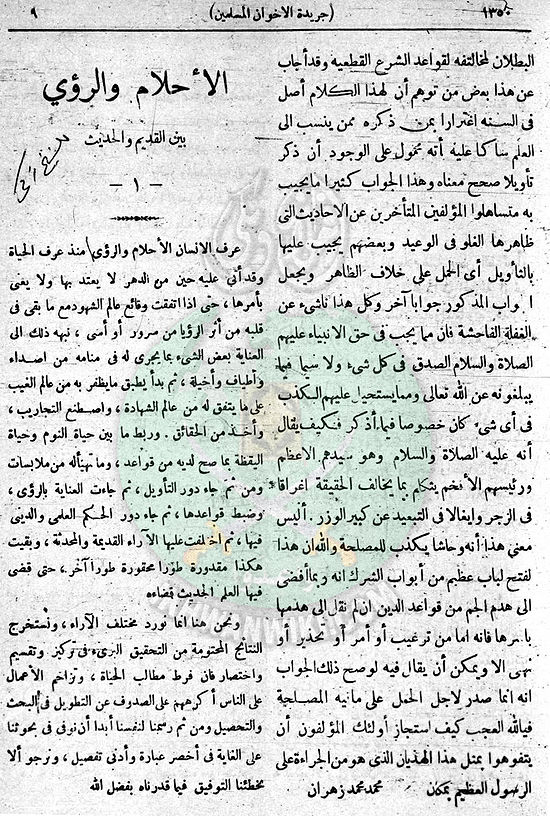 ١٣٥٠
(جريدة الاخوان المسلمين)
٩
البطلان لمخالفته لقواعد الشرع القطعية وقد أجاب
عن هذا بعض من توهم أن لهذا الكلام أصل
فى السنه اغترارا بمن ذكره ممن ينسب الى
العلم ساكتا عليه أنه محمول على الوجود أن ذكر
تأويلا صحح معناه وهذا الجواب كثيرا ما يجيب
به متساهلوا المؤلفين المتأخرين عن الاحاديث التى
ظاهرها الغلو فى الوعيد وبعضهم يجيب عليها
بالتأويل أى الحمل على خلاف الظاهر ويجعل
الجواب المذكور جوابا آخر وكل هذا ناشىء عن
الغفلة الفاحشة فان مما يجب فى حق الانبياء عليهم
الصلاة والسلام الصدق فى كل شىء ولا سيما فيما
يبلغونه عن الله تعالى ومما يستحيل عليهم الكذب
فى أى شىء كان خصوصا فيما أذكر فكيف يقال
أنه عليه الصلاة والسلام وهو سيدهم الاعظم
ورئيسهم الأفخم يتكلم بما يخالف الحقيقة اغراقا
فى الزجر وايغالا فى التبعيد عن كبير الوزر. أليس
معنى هذا أنه وحاشا يكذب للمصلحة والله ان هذا
لفتح لباب عظيم من أبواب الشرك انه وبما أفضى
الى هدم الجم من قواعد الدين ان لم نقل الى هدمها
باسرها فانه اما من ترغيب أو أمر أو تحذير أو
نهى الا ويمكن أن يقال فيه لو صح ذلك الجواب
انه انما صدر لاجل الحمل على مافيه المصلحة
فيالله العجب كيف استجاز أولئك المؤلفون أن
يتفوهوا بمثل هذا الهذيان الذى هو من الجراءة على
الرسول العظيم بمكان محمد محمد زهران
الأحلام والرؤي
بين القديم والحديث
— ١ —
عرف الانسان الأحلام والرؤى منذ عرف الحياة
وقد أتى عليه حين من الدهر لا يعتد بها ولا يعنى
بأمرها، حتى اذا اتفقت وقائع عالم الشهود مع ما بقى فى
قلبه من أثر الرؤيا من سرور أو أسى، نبهه ذلك الى
العناية بعض الشىء بما يجرى له فى منامه من اصداء
وأطياف وأخيلة، ثم بدأ يطبق ما يظفر به من عالم الغيب
على ما يتفق له من عالم الشهادة، واصطنع التجاريب،
وأخذ من الحقائق. وربط ما بين حياة النوم وحياة
اليقظة بما صح لديه من قواعد، وما تهيأ له من ملابسات
ومن ثم جاء دور التأويل، ثم جاءت العناية بالرؤى،
وضبط قواعدها، ثم جاء دور الحكم العلمى والدينى
فيها، ثم اختلفت عليها الآراء القديمة والمحدثة، وبقيت
هكذا مقدورة طورا محقورة طورا آخر، حتى قضى
فيها العلم الحديث قضاءه
ونحن هنا انما نورد مختلف الآراء، ونستخرج
النتائج المحتومة من التحقيق البرىء فى تركيز وتقسيم
واختصار فان فرط مطالب الحياة، وتزاحم الأعمال
على الناس أكرههم على الصدوف عن التطويل فى البحث
والتحصيل ومن ثم رسمنا لنفسنا أبدا أن نوفى فى بحوثنا
على الغاية فى أخصر عبارة وأدنى تفصيل، ونرجو ألا
يخطئنا التوفيق فيما قدرناه بفضل الله
IKHWANWIKI.COM